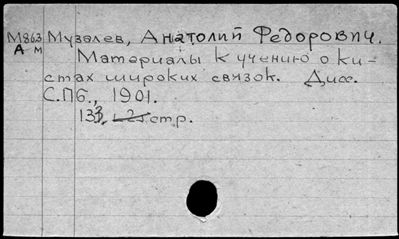 М863 Музалев, Анатолий Федорович.
А м Материалы к учению о ки-
стах широких связок. Дисс.
С.Пб., 1901.
133 стр.